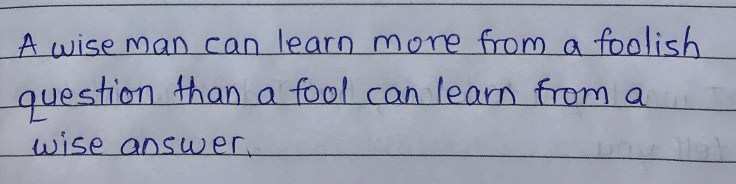 A wise man can learn more from a foolish
question than a fool can learn from a
wise answer.